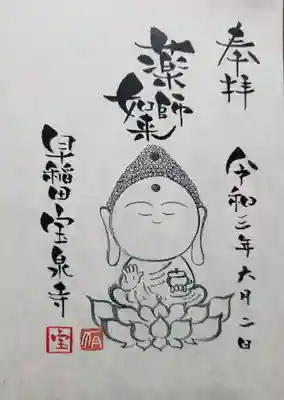 奉拝
令和三年六月二日
薬師
如来
早稲田宝泉寺
宝